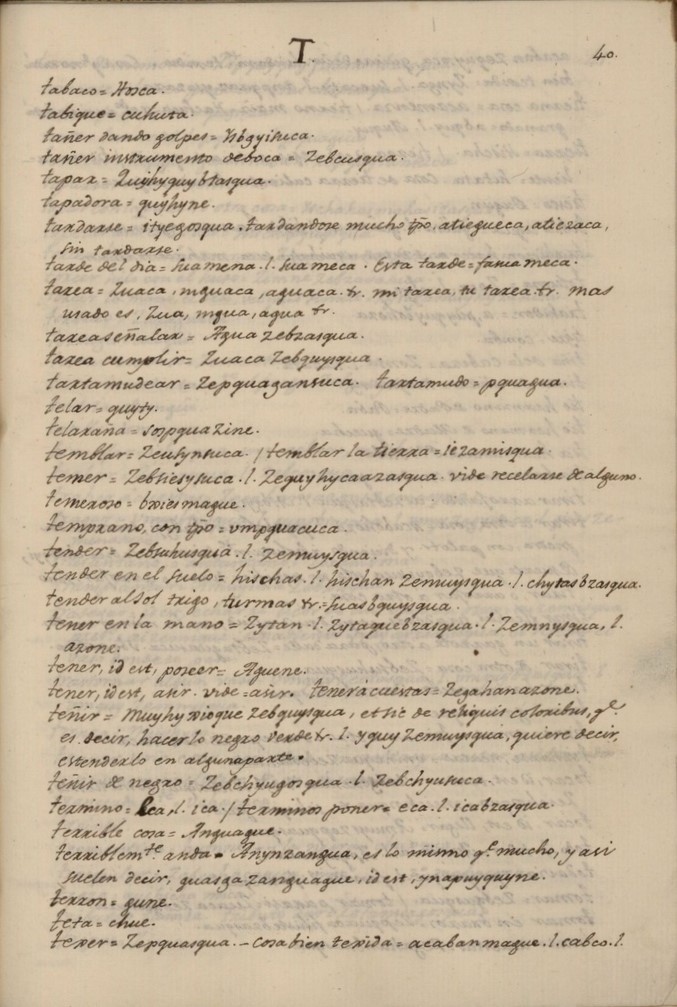 T.
40.
tabaco = Hosca.
tabique = cuhuta.
tañer dando golpes = Ysbgyisuca.
tañer instrumento deboca = Zebcusqua.
tapar = Quyhyquybtasqua.
tapadora = quyhyne.
tardarse = ityegosqua. tardandose mucho tpo, atiegueca, atiezaca,
sin tardarse.
tarde del dia = suamena. l. suameca. Esta tarde = fasuameca.
tarea = Zuaca, mguaca, aguaca. &. mi tarea, tu tarea &. mas
usado es, Zua, mgua, agua &.
tarea señalar = Agua zebzasqua.
tarea cumplir = Zuaca Zebquysqua.
tartamudear = Zepquagansuca. tartamudo = pquagua.
telar = quyty.
telaraña = sospquazine.
temblar = Zeusynsuca. / temblar la tierra = iezamisqua.
temer = Zebsiesysuca. l. Zequyhycaazasqua. vide recelarse de alguno.
temeroso = bxiesmague.
temprano, con tpo = vmpquacuca.
tender = Zebsuhusqua. l. zemuysqua.
tender en el suelo = hischas. l. hischan Zemuysqua. l. chytasbzasqua.
tender al sol trigo, turmas &. = suasbquysqua.
tener en la mano = Zytan. l. Zytaquebzasqua. l. Zemnysqua, l.
azone.
tener, id est, poseer = Aguene.
tener, id est, asir. vide = asir. tener á cuestas = Zegahanazone.
teñir = Muyhyxioque Zebquysqua, et sic de reliquis coloribus, qe.
es decir, hacerlo negro verde &. l. yquy Zemuysqua, quiere decir,
estenderlo en alguna parte.
teñir de negro = Zebchyugosqua. l. Zebchyusuca.
termino = Eca, l. ica. / terminos poner = eca. l. icabzasqua.
terrible cosa = Anguague.
terriblemte. anda = Anynzangua, es lo mismo qe. mucho, y asi
suelen decir, guasgazanguague, id est, ynapuyquyne.
terron = gune.
teta = chue.
texer = Zepquasqua. - cosa bien texida = acabanmague. l. cabco. l.